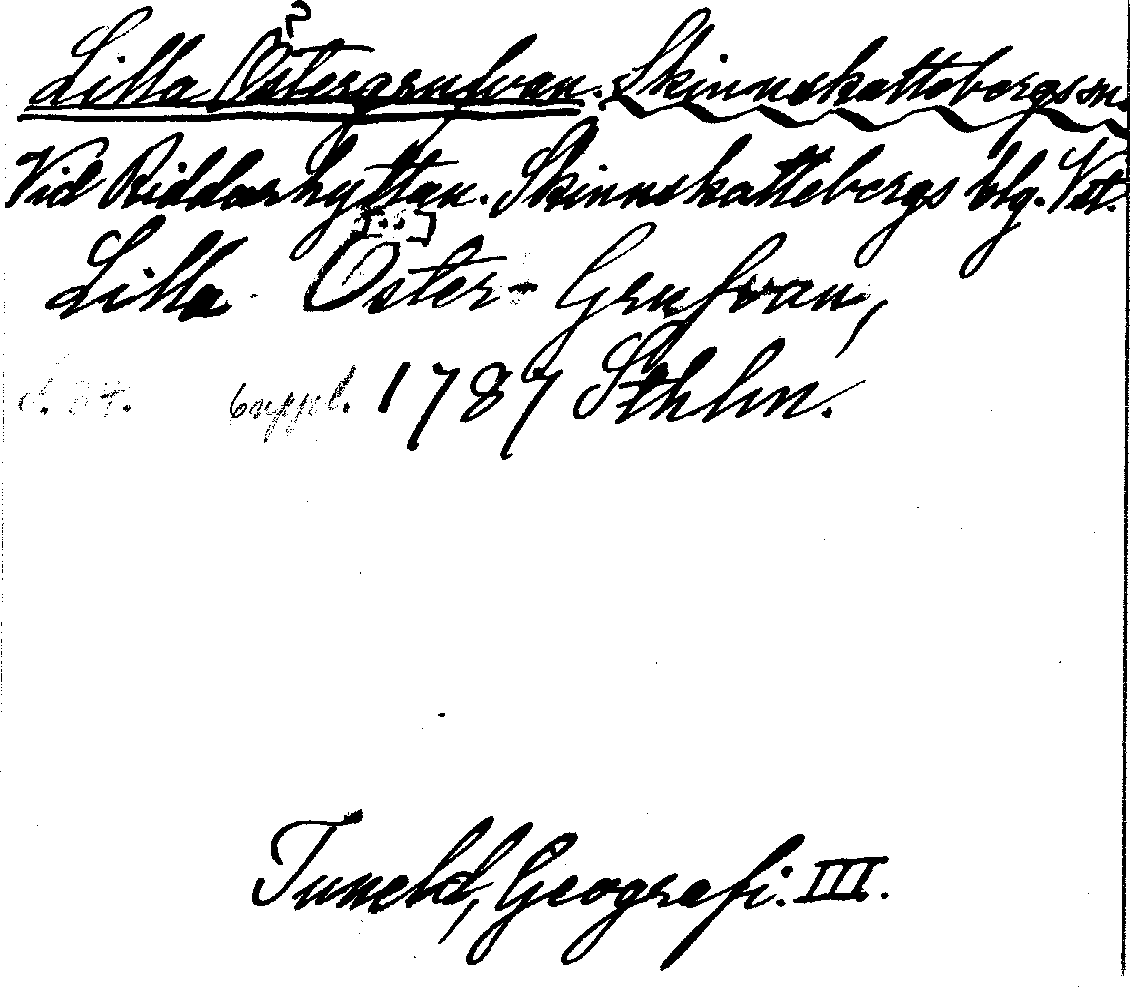 Lilla Östergrufvan. Skinnskattebergs sn.
Vid Riddarhyttan. Skinnskattebergs blg. Vst.
Lilla Öster-Grufvan,
s. 24. 6 uppl. 1787 Sthlm.
Tuneld, Geografi. III.